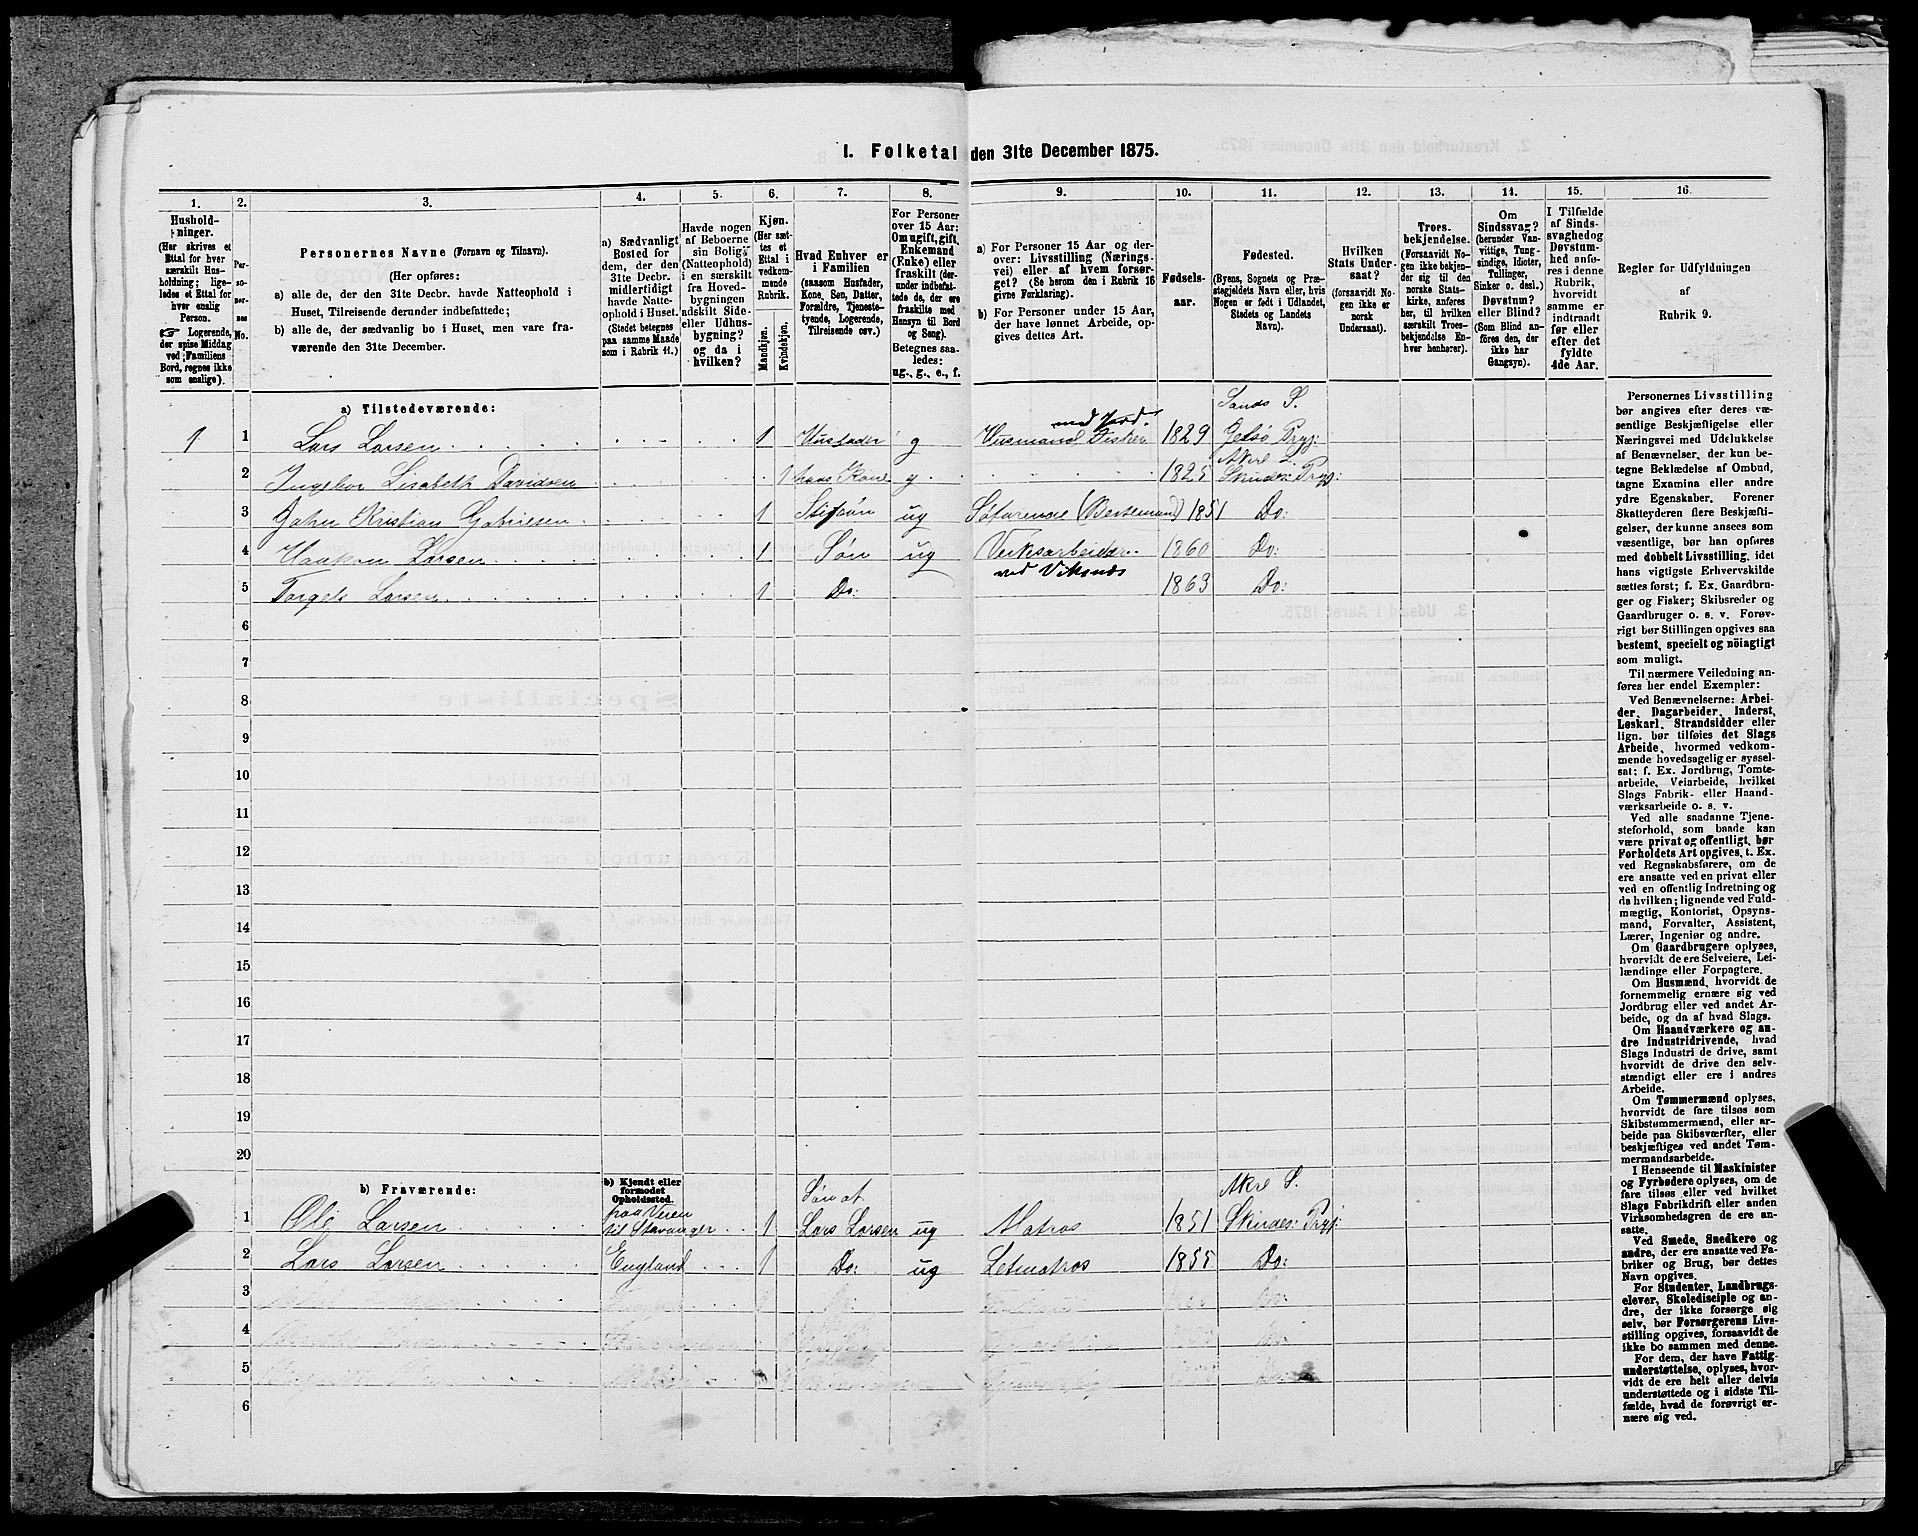 I. Folketal den 31te December 1875.
1. 2. 3. 4. 5. 6. 7. 8. 9. 10. 11. 12. 13. 14. 15. 16.
Hushold-
ninger.
(Her skrives et
Ettal for hver
særskilt Hus-
holdning; lige-
ledes et Ettal for
hver enslig
Person.
☞ Logerende,
der spise Middag
ved Familiens
Bord, regnes ikke
som enslige).
Per-
so-
ner-
nes
No.
Personernes Navne (Fornavn og Tilnavn).
(Her opføres:
a) alle de, der den 31te Decbr. havde Natteophold i
Huset, Tilreisende derunder indbefattede;
b) alle de, der sædvanlig bo i Huset, men vare fra-
værende den 31te December.
a) Sædvanligt
Bosted for
dem, der den
31te Decbr.
midlertidigt
havde Natte-
ophold i Huset.
(Stedet betegnes
paa samme Maade
som i Rubrik 11.)
Havde nogen
af Beboerne
sin Bolig
(Natteophold)
i en særskilt
fra Hoved-
bygningen
adskilt Side-
eller Udhus-
bygning?
og da i
hvilken?
Kjøn.
(Her sæt-
tes et
Ettal i
vedkom-
mende
Rubrik.
Mandkjøn.
Kvindekjøn.
Hvad Enhver er
i Familien
(saasom Husfader,
Kone, Søn, Datter,
Forældre, Tjeneste-
tyende, Logerende,
Tilreisende osv.)
For Personer
over 15 Aar:
Om ugift, gift,
Enkemand
(Enke) eller
fraskilt (der-
under indbefat-
tede de, der ere
fraskilte med
Hensyn til Bord
og Seng).
Betegnes saa-
ledes:
ug., g., e., f.
a) For Personer 15 Aar og der-
over: Livsstilling (Nærings-
vei) eller af hvem forsør-
get? (Se herom den i Rubrik 16
givne Forklaring).
b) For Personer under 15 Aar,
der have lønnet Arbeide, op-
gives dettes Art.
Fødsels-
aar.
Fødested.
(Byens, Sognets og Præ-
stegjeldets Navn eller, hvis
Nogen er født i Udlandet,
Stedets og Landets
Navn).
Hvilken
Stats Under-
saat?
(forsaavidt No-
gen ikke er
norsk
Undersaat).
Troes-
bekjendelse.
(Forsaavidt No-
gen ikke bekjen-
der sig til den
norske Stats-
kirke, anføres
her, til hvilken
særskilt Troes-
bekjendelse En-
hver henhører).
Om
Sindssvag?
(herunder Van-
vittige, Tung-
sindige, Idioter,
Tullinger,
Sinker o. desl.)
Døvstum?
eller Blind?
(Som Blind an-
føres den, der
ikke har
Gangsyn).
I Tilfælde
af Sinds-
svaghed og
Døvstum-
hed anfø-
res i denne
Rubrik,
hvorvidt
samme er
indtraadt
før eller
efter det
fyldte
4de Aar.
Regler for Udfyldningen
af
Rubrik 9.
a) Tilstedeværende:
1 1 Lars Larsen 1 Husfader g Husmand med Jord. Fisker 1829 Sands S. Jelsø Prgj:
2 Ingebor Lisabeth Davidsen 1 hans Kone g 1825 Akre S. Skindes: Prgj:
3 John Kristian Gabrielsen 1 Stifsøn ug Søfarende (Bestemand) 1851 Do:
4 Haakon Larsen 1 Søn ug Verksarbeider ved Viksnæs 1860 Do:
5 Torgels Larsen 1 Do: 1863 Do:
6
7
8
9
10
11
12
13
14
15
16
17
18
19
20
b) Fraværende:
b) Kjendt eller
formodet
Opholdssted.
1 Ole Larsen paa Veien til Stavanger 1 Søn af Lars Larsen ug Matros 1851 Akre S. Skindes: Prgj:
2 Lars Larsen England 1 Do: ug Letmatros 1855 Do:
3
4
5
6
Personernes Livsstilling
bør angives efter deres væ-
sentlige Beskjæftigelse eller
Næringsvei med Udelukkelse
af Benævnelser, der kun be-
tegne Beklædelse af Ombud,
tagne Examina eller andre
ydre Egenskaber. Forener
Skatteyderen flere Beskjæfti-
gelser, der kunne ansees som
væsentlige, bør han opføres
med dobbelt Livsstilling, idet
hans vigtigste Erhvervskilde
sættes først; f. Ex. Gaardbru-
ger og Fisker; Skibsreder og
Gaardbruger o. s. v. Forøv-
rigt bør Stillingen opgives saa
bestemt, specielt og nöiagtigt
som muligt.
Til nærmere Veiledning an-
føres her endel Exempler:
Ved Benævnelserne: Arbei-
der, Dagarbeider, Inderst,
Løskarl, Strandsidder eller
lign. bør tilføies det Slags
Arbeide, hvormed vedkom-
mende hovedsagelig er syssel-
sat; f. Ex. Jordbrug, Tomte-
arbeide, Veiarbeide, hvilket
Slags Fabrik- eller Haand-
værksarbeide o. s. v.
Ved alle saadanne Tjene-
steforhold, som baade kan
være privat og offentligt, bør
Forholdets Art opgives, t. Ex.
ved Regnskabsførere, om de
ere ansatte ved en privat eller
ved en offentlig Indretning og
da hvilken; lignende ved Fuld-
mægtig, Kontorist, Opsyns-
mand, Forvalter, Assistent,
Lærer, Ingeniør og andre.
Om Gaardbrugere oplyses,
hvorvidt de ere Selveiere, Lei-
lændinge eller Forpagtere.
Om Husmænd, hvorvidt de
fornemmelig ernære sig ved
Jordbrug eller ved andet Ar-
beide, og da af hvad Slags.
Om Haandværkere og an-
dre Industridrivende, hvad
Slags Industri de drive, samt
hvorvidt de drive den selv-
stændigt eller ere i andres
Arbeide.
Om Tømmermænd oplyses,
hvorvidt de fare tilsøs som
Skibstømmermænd, eller ar-
beide paa Skibsværfter, eller
beskjæftiges ved andet Tøm-
mermandsarbeide.
I Henseende til Maskinister
og Fyrbødere oplyses, om de
fare tilsøs eller ved hvilket
Slags Fabrikdrift eller anden
Virksomhedsgren de ere an-
satte.
Ved Smede, Snedkere og
andre, der ere ansatte ved Fa-
briker og Brug, bør dettes
Navn opgives.
For Studenter, Landbrugs-
elever, Skoledisciple og an-
dre, der ikke forsørge sig
selv, bør Forsørgerens Livs-
stilling opgives, forsaavidt de
ikke bo sammen med denne.
For dem, der have Fattig-
understøttelse, oplyses, hvor-
vidt de ere helt eller delvis
understøttede og i sidste Til-
fælde, hvad de forøvrigt er-
nære sig ved.